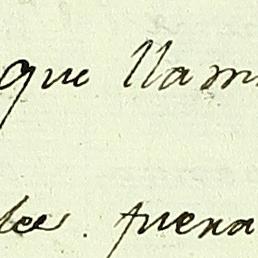 que llam
lee. fuera